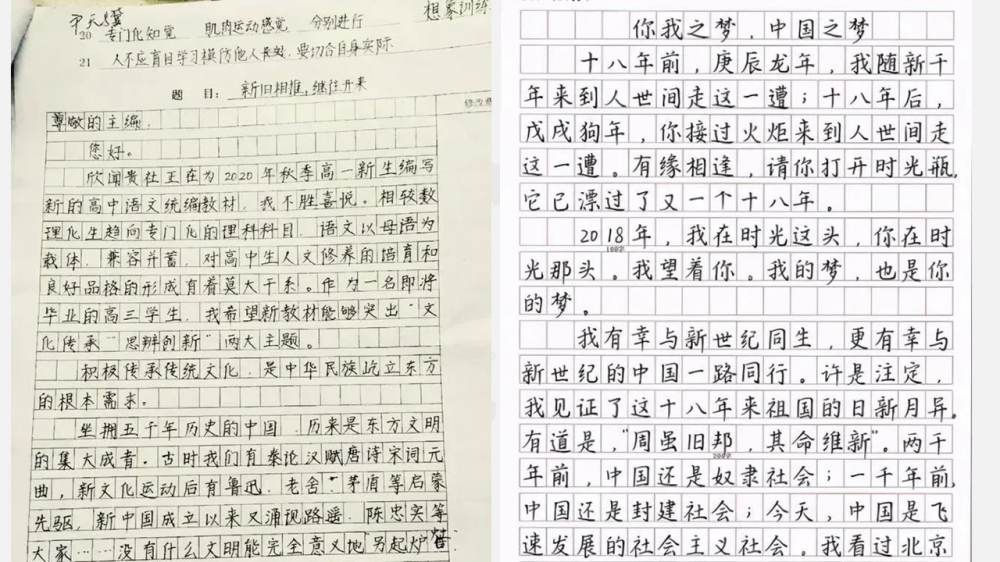 尹天骥
20 专门化知觉 肌肉运动感觉 分别进行
想象训练
21 人不应盲目学习模仿他人长处，要切合自身实际
题 目： 新旧相推，继往开来
修改意
尊敬的主编：
您好。
欣闻贵社正在为2020年秋季高一新生编写
新的高中语文统编教材，我不胜喜悦。相较数
理化生趋向专门化的理科科目，语文以母语为
载体，兼容并蓄，对高中生人文修养的培育和
良好品格的形成有着莫大干系。作为一名即将
毕业的高三学生，我希望新教材能够突出“文
化传承”“思辨创新”两大主题。
积极传承传统文化，是中华民族屹立东方
的根本需求。
坐拥五千年历史的中国，历来是东方文明
的集大成者。古时我们有秦论汉赋唐诗宋词元
曲，新文化运动后有鲁迅、老舍、茅盾等启蒙
先驱，新中国成立以来又涌现路遥、陈忠实等
大家……没有什么文明能完全意义地“另起炉
你我之梦，中国之梦
十八年前，庚辰龙年，我随新千
年来到人世间走这一遭；十八年后，
戊戌狗年，你接过火炬来到人世间走
这一遭。有缘相逢，请你打开时光瓶，
它已漂过了又一个十八年。
2018年，我在时光这头，你在时
100字
光那头。我望着你。我的梦，也是你
的梦。
我有幸与新世纪同生，更有幸与
新世纪的中国一路同行。许是注定，
我见证了这十八年来祖国的日新月异。
有道是，“周虽旧邦，其命维新”。两千
200字
年前，中国还是奴隶社会；一千年前，
中国还是封建社会；今天，中国是飞
速发展的社会主义社会。我看过北京